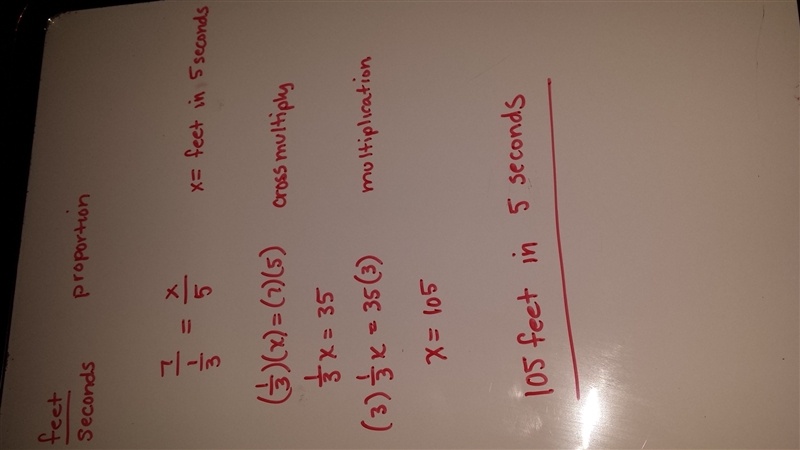 feet
seconds proportion
7/(1/3) = x/5 x = feet in 5 seconds
(1/3)(x) = (7)(5) cross multiply
1/3 x = 35
(3) 1/3 x = 35(3) multiplication
x = 105
105 feet in 5 seconds